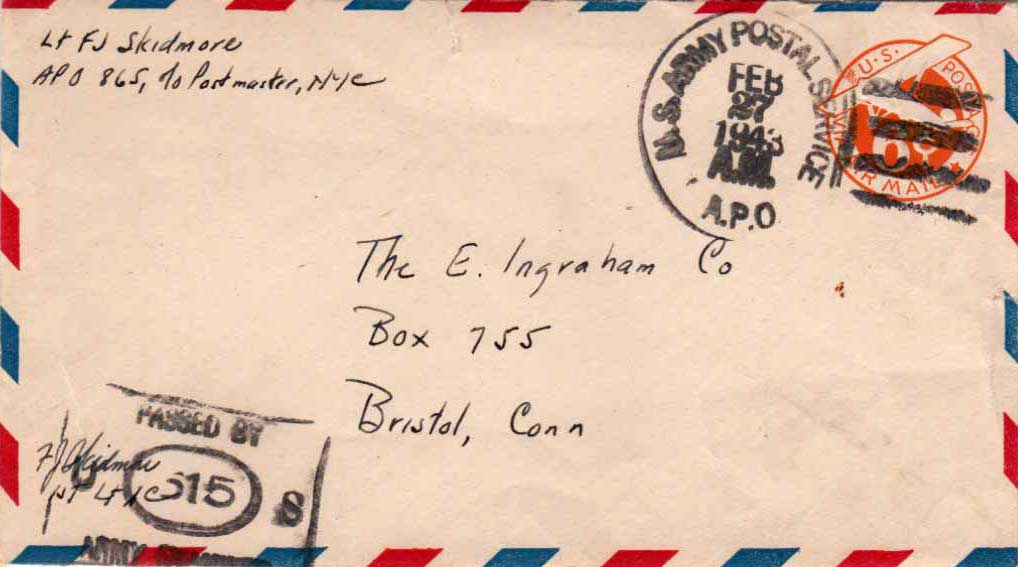 Lt FJ Skidmore
APO 865, c/o Postmaster, NYC
U.S. ARMY POSTAL SERVICE
FEB
27
1943
A.M.
A.P.O.
U.S. POSTAGE
6¢
AIR MAIL
The E. Ingraham Co
Box 755
Bristol, Conn
PASSED BY
U 615 S
ARMY
FJ Skidmore
1st Lt